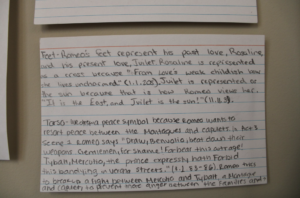 Feet-Romeo's feet represent his past love, Rosaline
and his present love, Juliet. Rosaline is represented
as a because "From Love's weak childish bow
she lives uncharmed" (1.1. Juliet is represented as
the sun because that is how Romeo views her.
"It is the East, and Juliet is the sun!"
Torso- peace symbol because Romeo wants to
insert peace between the Montagues and Capulets in Act 3
Scene 1. Romeo says "Draw, Benvolio, beat down their
weapons. Gentlemen, for shame! Forbear this outrage!
Tybalt, Mercutio, the prince expressly hath Forbid
this bandying in Verona streets." 83-86). Romeo
a fight between Mercutio and Tybalt, a Montague
and Capulet, to prevent more anger between the families and